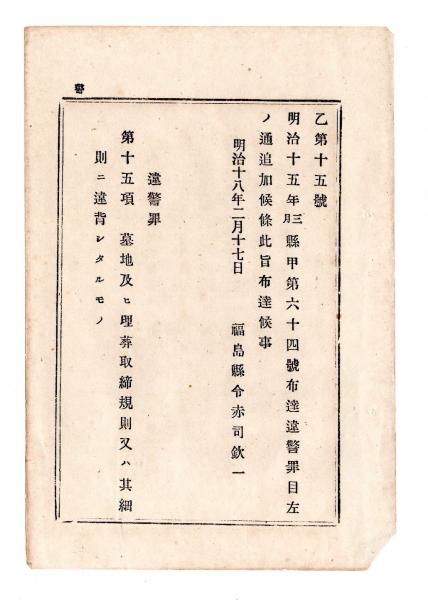 乙第十五號
明治十五年三月縣甲第六十四號布達違警罪目左
ノ通追加候條此旨布達候事
明治十八年二月十七日
福島縣令赤司欽一
違警罪
第十五項 墓地及ヒ埋葬取締規則又ハ其細
則ニ違背シタルモノ
警